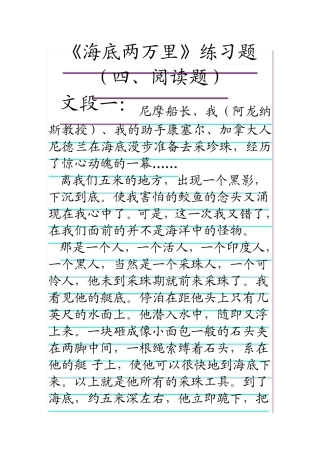 《海底两万里》练习题
（四、阅读题）
文段一： 尼摩船长、我（阿龙纳
斯教授）、我的助手康塞尔、加拿大人
尼德兰在海底漫步准备去采珍珠，经历
了惊心动魄的一幕……
离我们五米的地方，出现一个黑影，
下沉到底。使我害怕的鲛鱼的念头又涌
现在我心中了。可是，这一次我又错了，
在我们面前的并不是海洋中的怪物。
那是一个人，一个活人，一个印度人，
一个黑人，当然是一个采珠人，一个可
怜人，他未到采珠期就前来采珠了。我
看见他的艇底。停泊在距他头上只有几
英尺的水面上。他潜入水中，随即又浮
上来。一块砸成像小面包一般的石头夹
在两脚中间，一根绳索缚着石头，系在
他的艇 子上，使他可以很快地到海底下
来。以上就是他所有的采珠工具。到了
海底，约五米深左右，他立即跪下，把